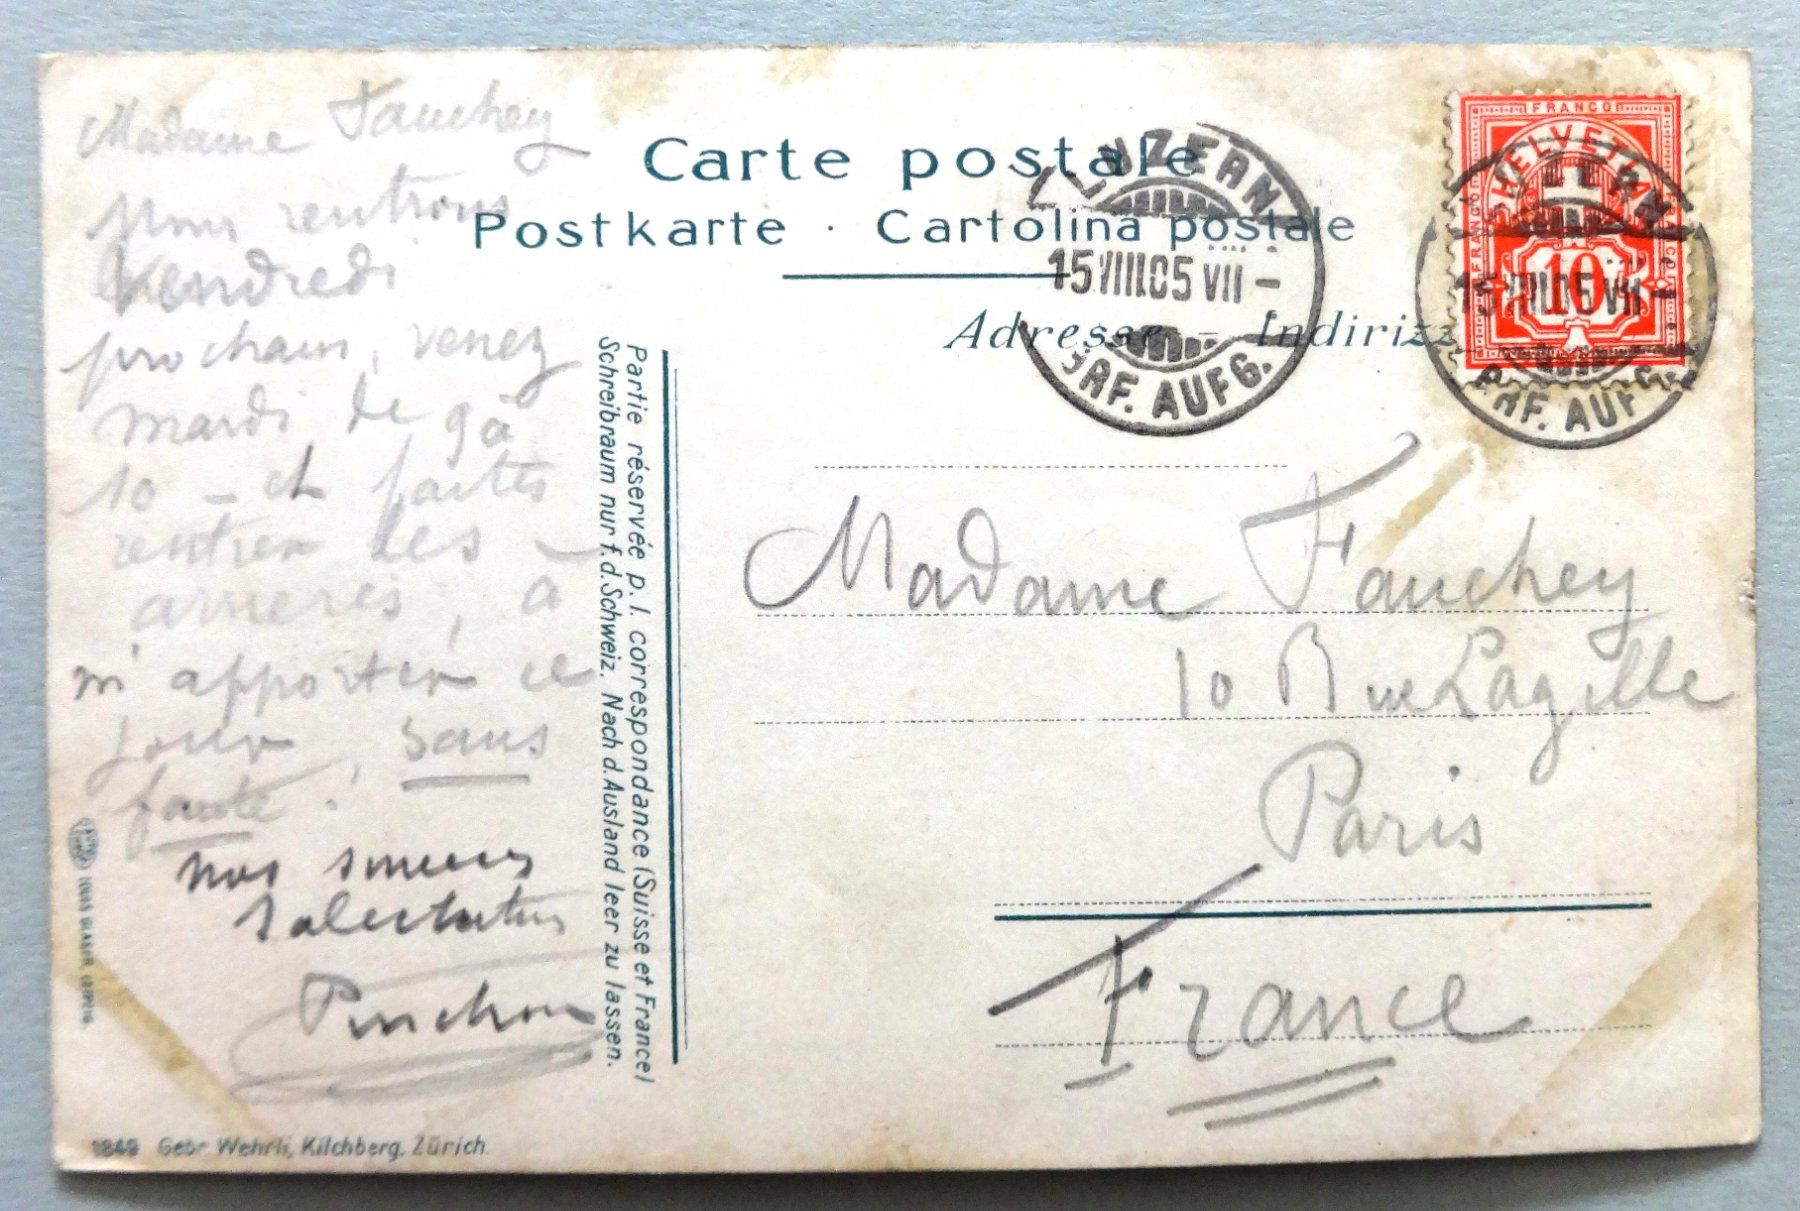 Carte postale
Postkarte · Cartolina postale
Adresse - Indirizz
FRANCO
HELVETIA
FRANCO
10
LUZERN
15.VIII.05 VII -
BRF. AUFG.
LUZERN
15.VIII.05 VII -
BRF. AUFG.
Madame Fauchey
nous rentrons
Vendredi
prochain, venez
mardi de 9 à
10 - et faites
rentrer les
arrierés, à
m'apporter ce
jour, sans
faute.
nos sinceres
Salutations
Pinchon
Partie réservée p. l. correspondance (Suisse et France)
Schreibraum nur f. d. Schweiz. Nach d. Ausland leer zu lassen.
Madame Fauchey
10 Rue Lagille
Paris
France
LOUIS GLASER LEIPZIG.
1849 Gebr Wehrli, Kilchberg, Zürich.